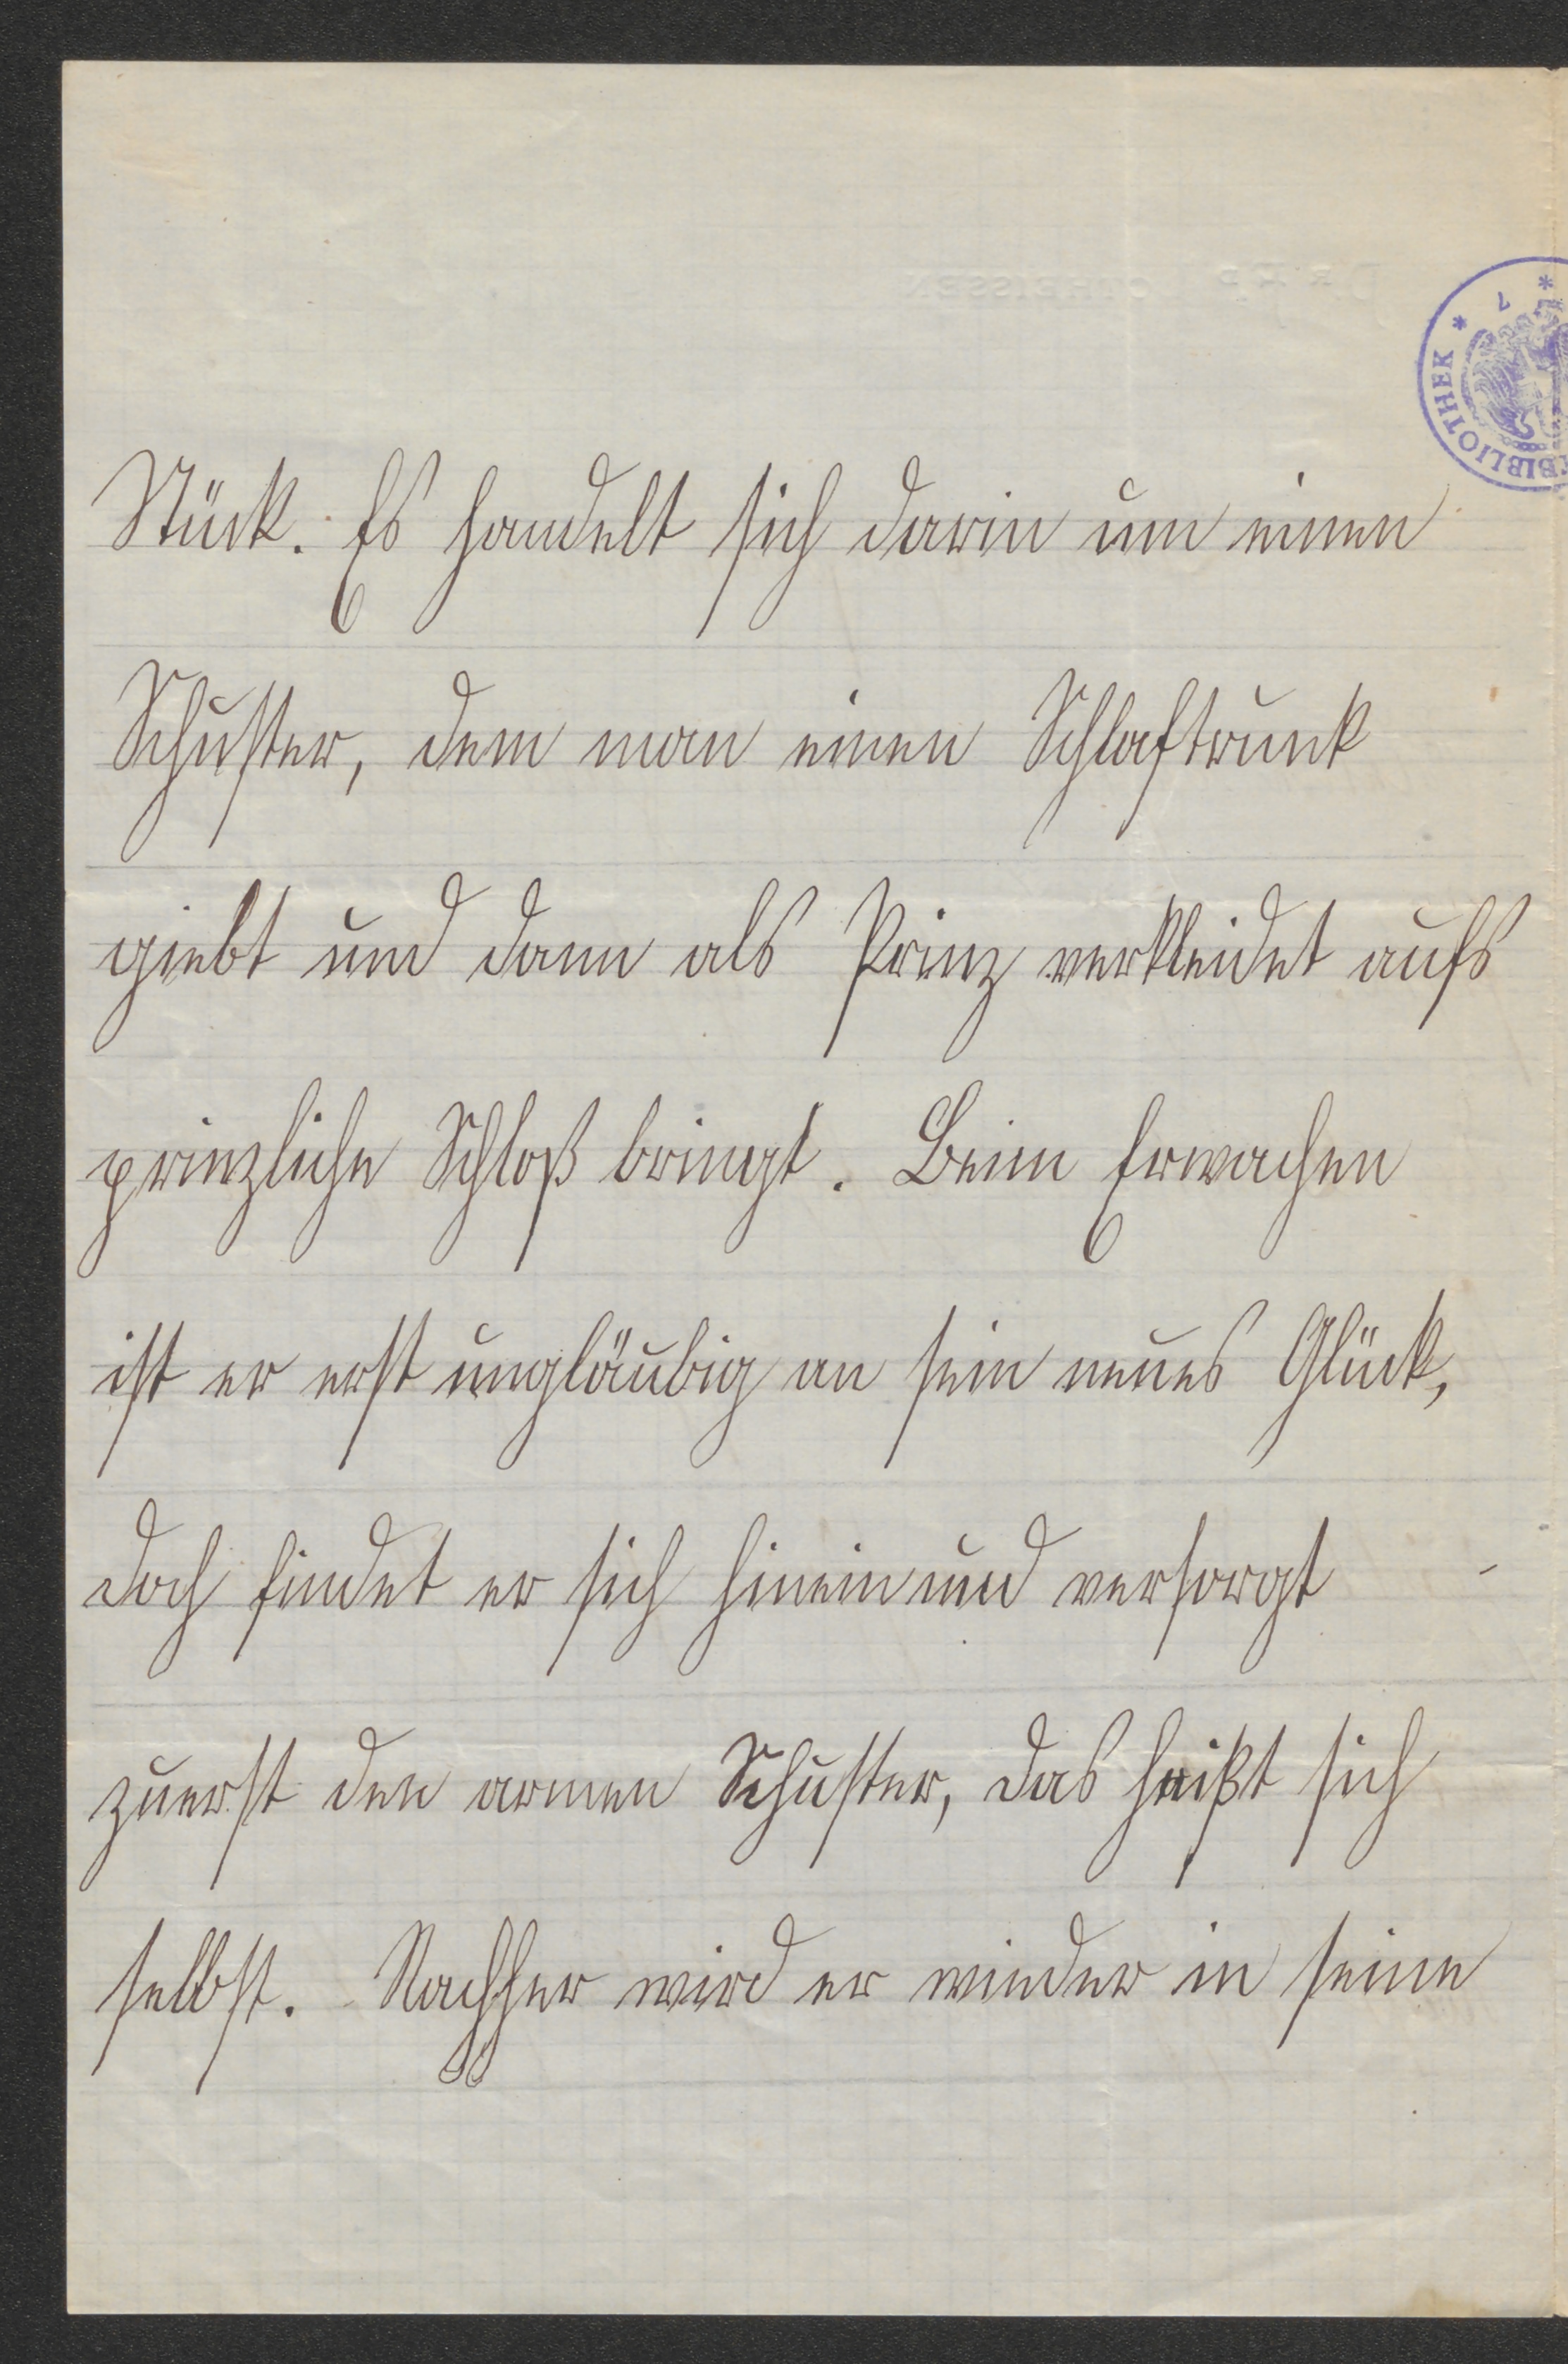 Stück. Es handelt sich darin um einen
Schuster, dem man einen Schlaftrunk
giebt und dann als Prinz verkleidet aufs
prinzliche Schloß bringt. Beim Erwachen
ist er erst ungläubig an sein neues Glück,
doch findet er sich hinein und versorgt
zuerst den armen Schuster, das heißt sich
selbst. Nachher wird er wieder in seine
BIBLIOTHEK